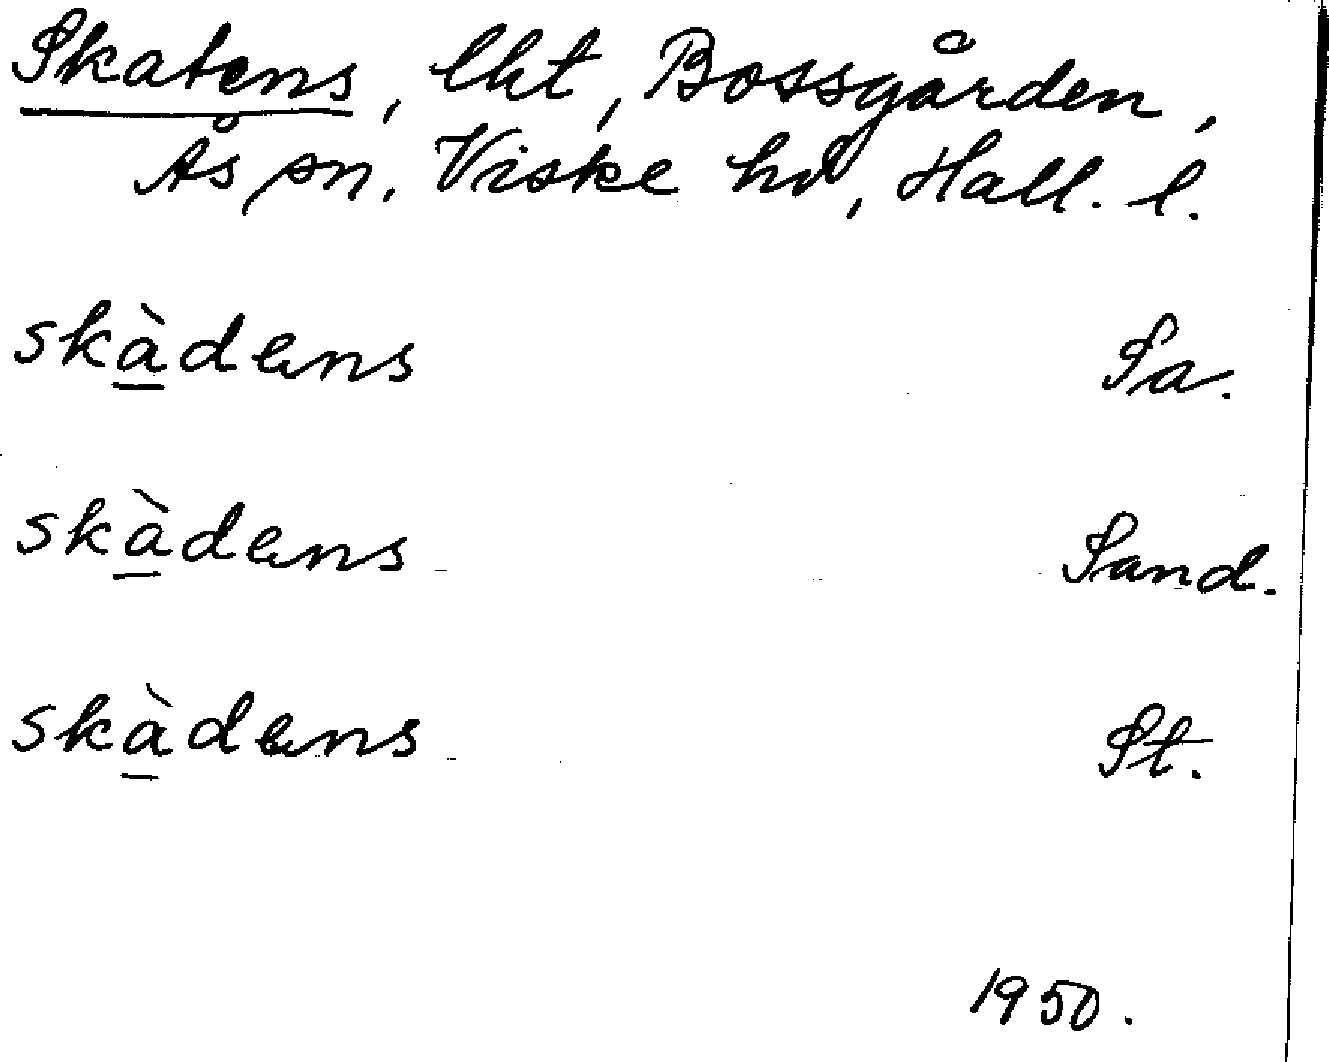 Skatens, lht, Bossgården,
Ås sn. Viske hd, Hall. l.
skàdens Sa.
skàdens Sand.
skàdens St.
1950.